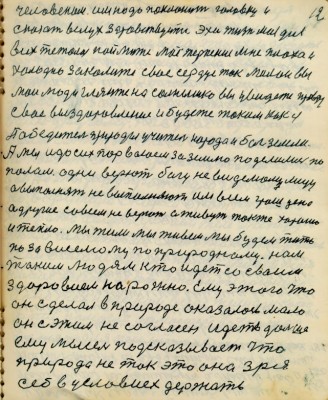 12
человекам им надо поклонит головку и
сказат вслух здравствуйти Эхи жизя моя для
всех тетолом поймите маё терпение мне плохо и
холодно закалите свае сердце
мои люди гляните на солнышко вы
свое выздоровление и будете таким как я
победител природы учител народа и бог земли.
А мы и до сих пор воюем за землю поделились по
полам. одни верют богу не видемому лицу
а выпонят не выполняют им всем грош цена
а другие совсем не верют а живут также хорошо
и тепло. Мы жили мы живем мы будем жить
по зависемому по природному. нам
таким людям кто идет со своим
здоровием на рожно. Ему этого что
он сделал в природе оказалос мало
он с этим не согласен идеть дальше
ему мысел подсказывает что
природа не так это она зря
себ в условиех держать